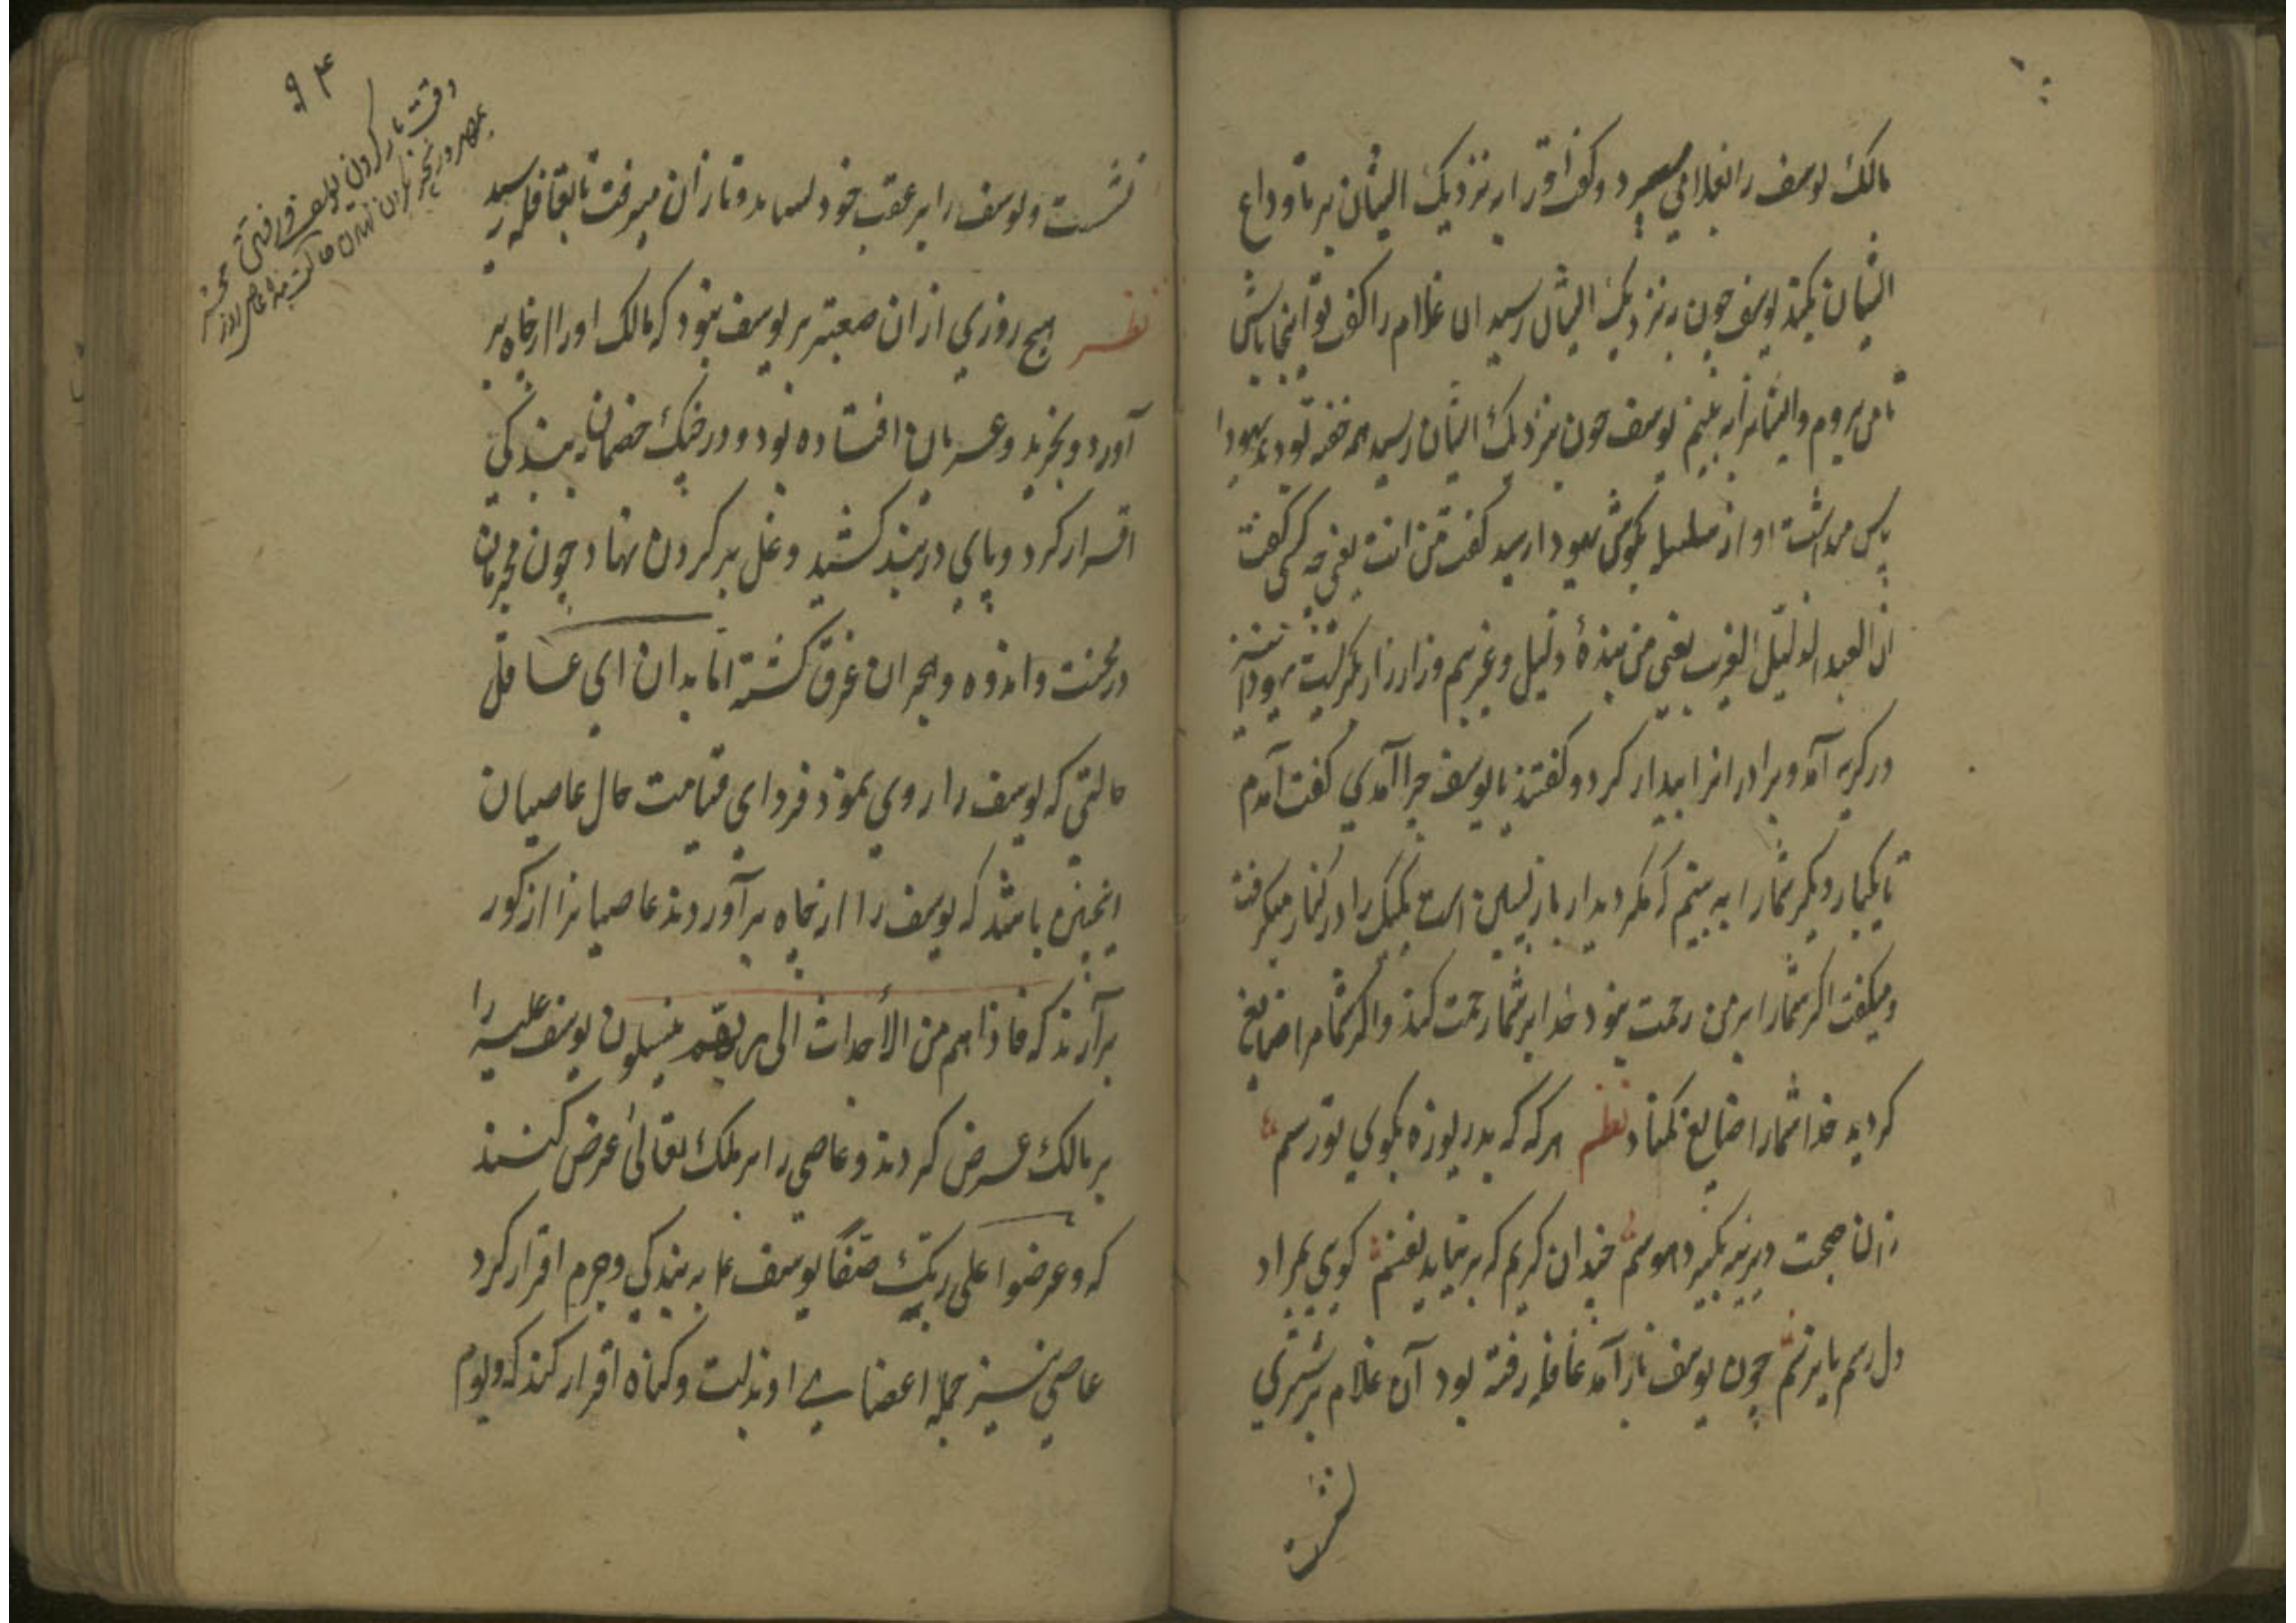 مالک یوسف را بغلامی سپرد و کفت او را به نزدیک ایشان بر تا وداع
ایشان بکند یوسف چون به نزدیک ایشان رسید ان غلام را کفت تو اینجا باش
تا من بروم و ایشانرا به بینم یوسف چون بنزدیک ایشان رسید همه خفته بودند یهودا
پاس میداشت اواز سلسله بکوش یهودا رسید کفت من انت یعنی چه کسی کفت
انا العبد الذلیل الغریب یعنی من بندهٔ ذلیل و غریبم وزار زار بکریست یهودا نیز
در کریه آمد و برادرانرا بیدار کرد و کفتند یا یوسف چرا آمدی کفت آمدم
تا یکبار دیکر شمارا به بینم که مکر دیدار بازپسین است یکیک را در کنار میکرفت
و میکفت اکر شمارا بر من رحمت نبود خدا بر شما رحمت کند و اکر شما مرا ضایع
کردید خدا شمارا ضایع نکناد نظم هرکه که بدریوزه بکوی تو رسم
زان صحبت دیرینه بکیرد هوسم چندان کریم که بر نیاید نفسم کوی بمراد
دل رسم یا نرسم چون یوسف باز آمد قافله رفته بود آن غلام بر شتری
نشست
۹۴
وقت بار کردن یوسف و رفتن
نشست و یوسف را بر عقب خود بست و تازان میرفت تا بقافله رسید
نظر هیچ روزی ازان صعبتر بر یوسف نبود که مالک اورا از چاه بر
آورد و بخرید و عریان افتاده بود و در جنک خصمان ببندکی
اقرار کرد و پای در بند کشید و غل بر کردن نهاد چون مجرمان
در محنت و اندوه و هجران غرق کشته اما بدان ای عاقل
حالتی که یوسف را روی نمود فردای قیامت حال عاصیان
اینچنین باشد که یوسف را از چاه برآوردند عاصیانرا از کور
برآرند که فاذا هم من الأجداث الی ربهم ینسلون یوسف علیه را
بر مالک عرض کردند و عاصی را بر ملک تعالیٰ عرض کنند
که وعرضوا علی ربک صفا یوسف ع به بندکی و جرم اقرار کرد
عاصی نیز جمله اعضای او بذلت و کناه اقرار کند که ویوم